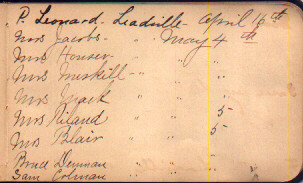 P. Leonard - Leadville - April 16th
Mrs Jacobs - " May 4th
Mrs Houser - " " "
Mrs Muskill - " " "
Mrs Mack " " "
Mrs Riland " " 5
Mrs Blair " " 5
Brud Denman " " "
Sam Colman " " "